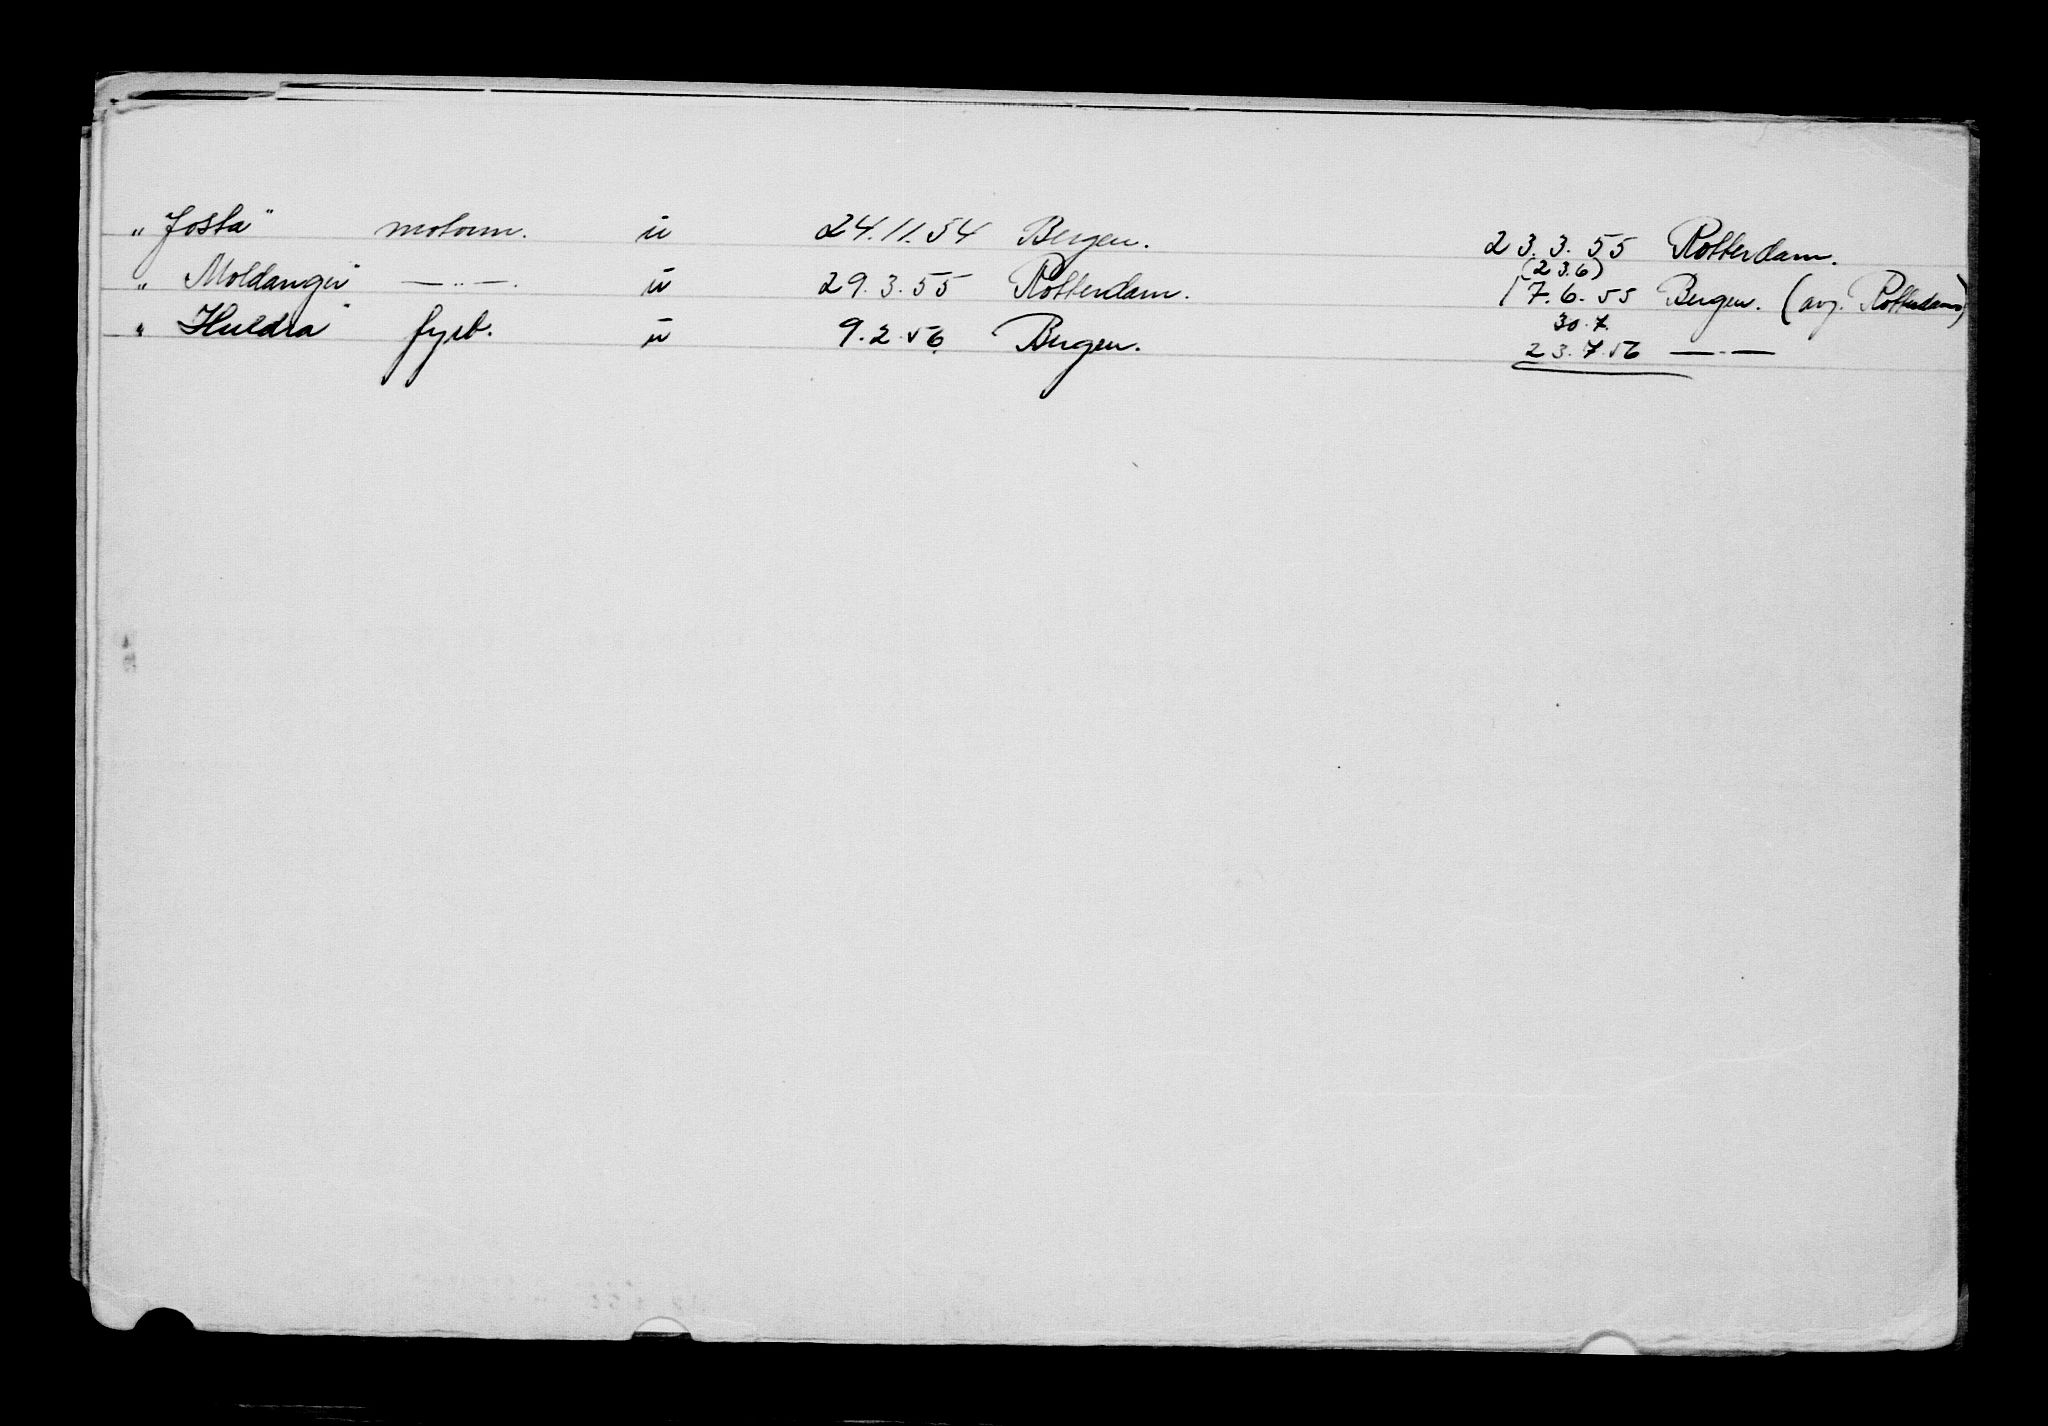 „ Josta" motorm. u 24.11.54 Bergen. 23.3.55 Rotterdam.
„ Moldanger" —„—. u 29.3.55 Rotterdam. (23.6) 17.6.55 Bergen. (avg. Rotterdam)
„ Huldra" fyrb. u 9.2.56 Bergen. 30.7. 23.7.56 —„—